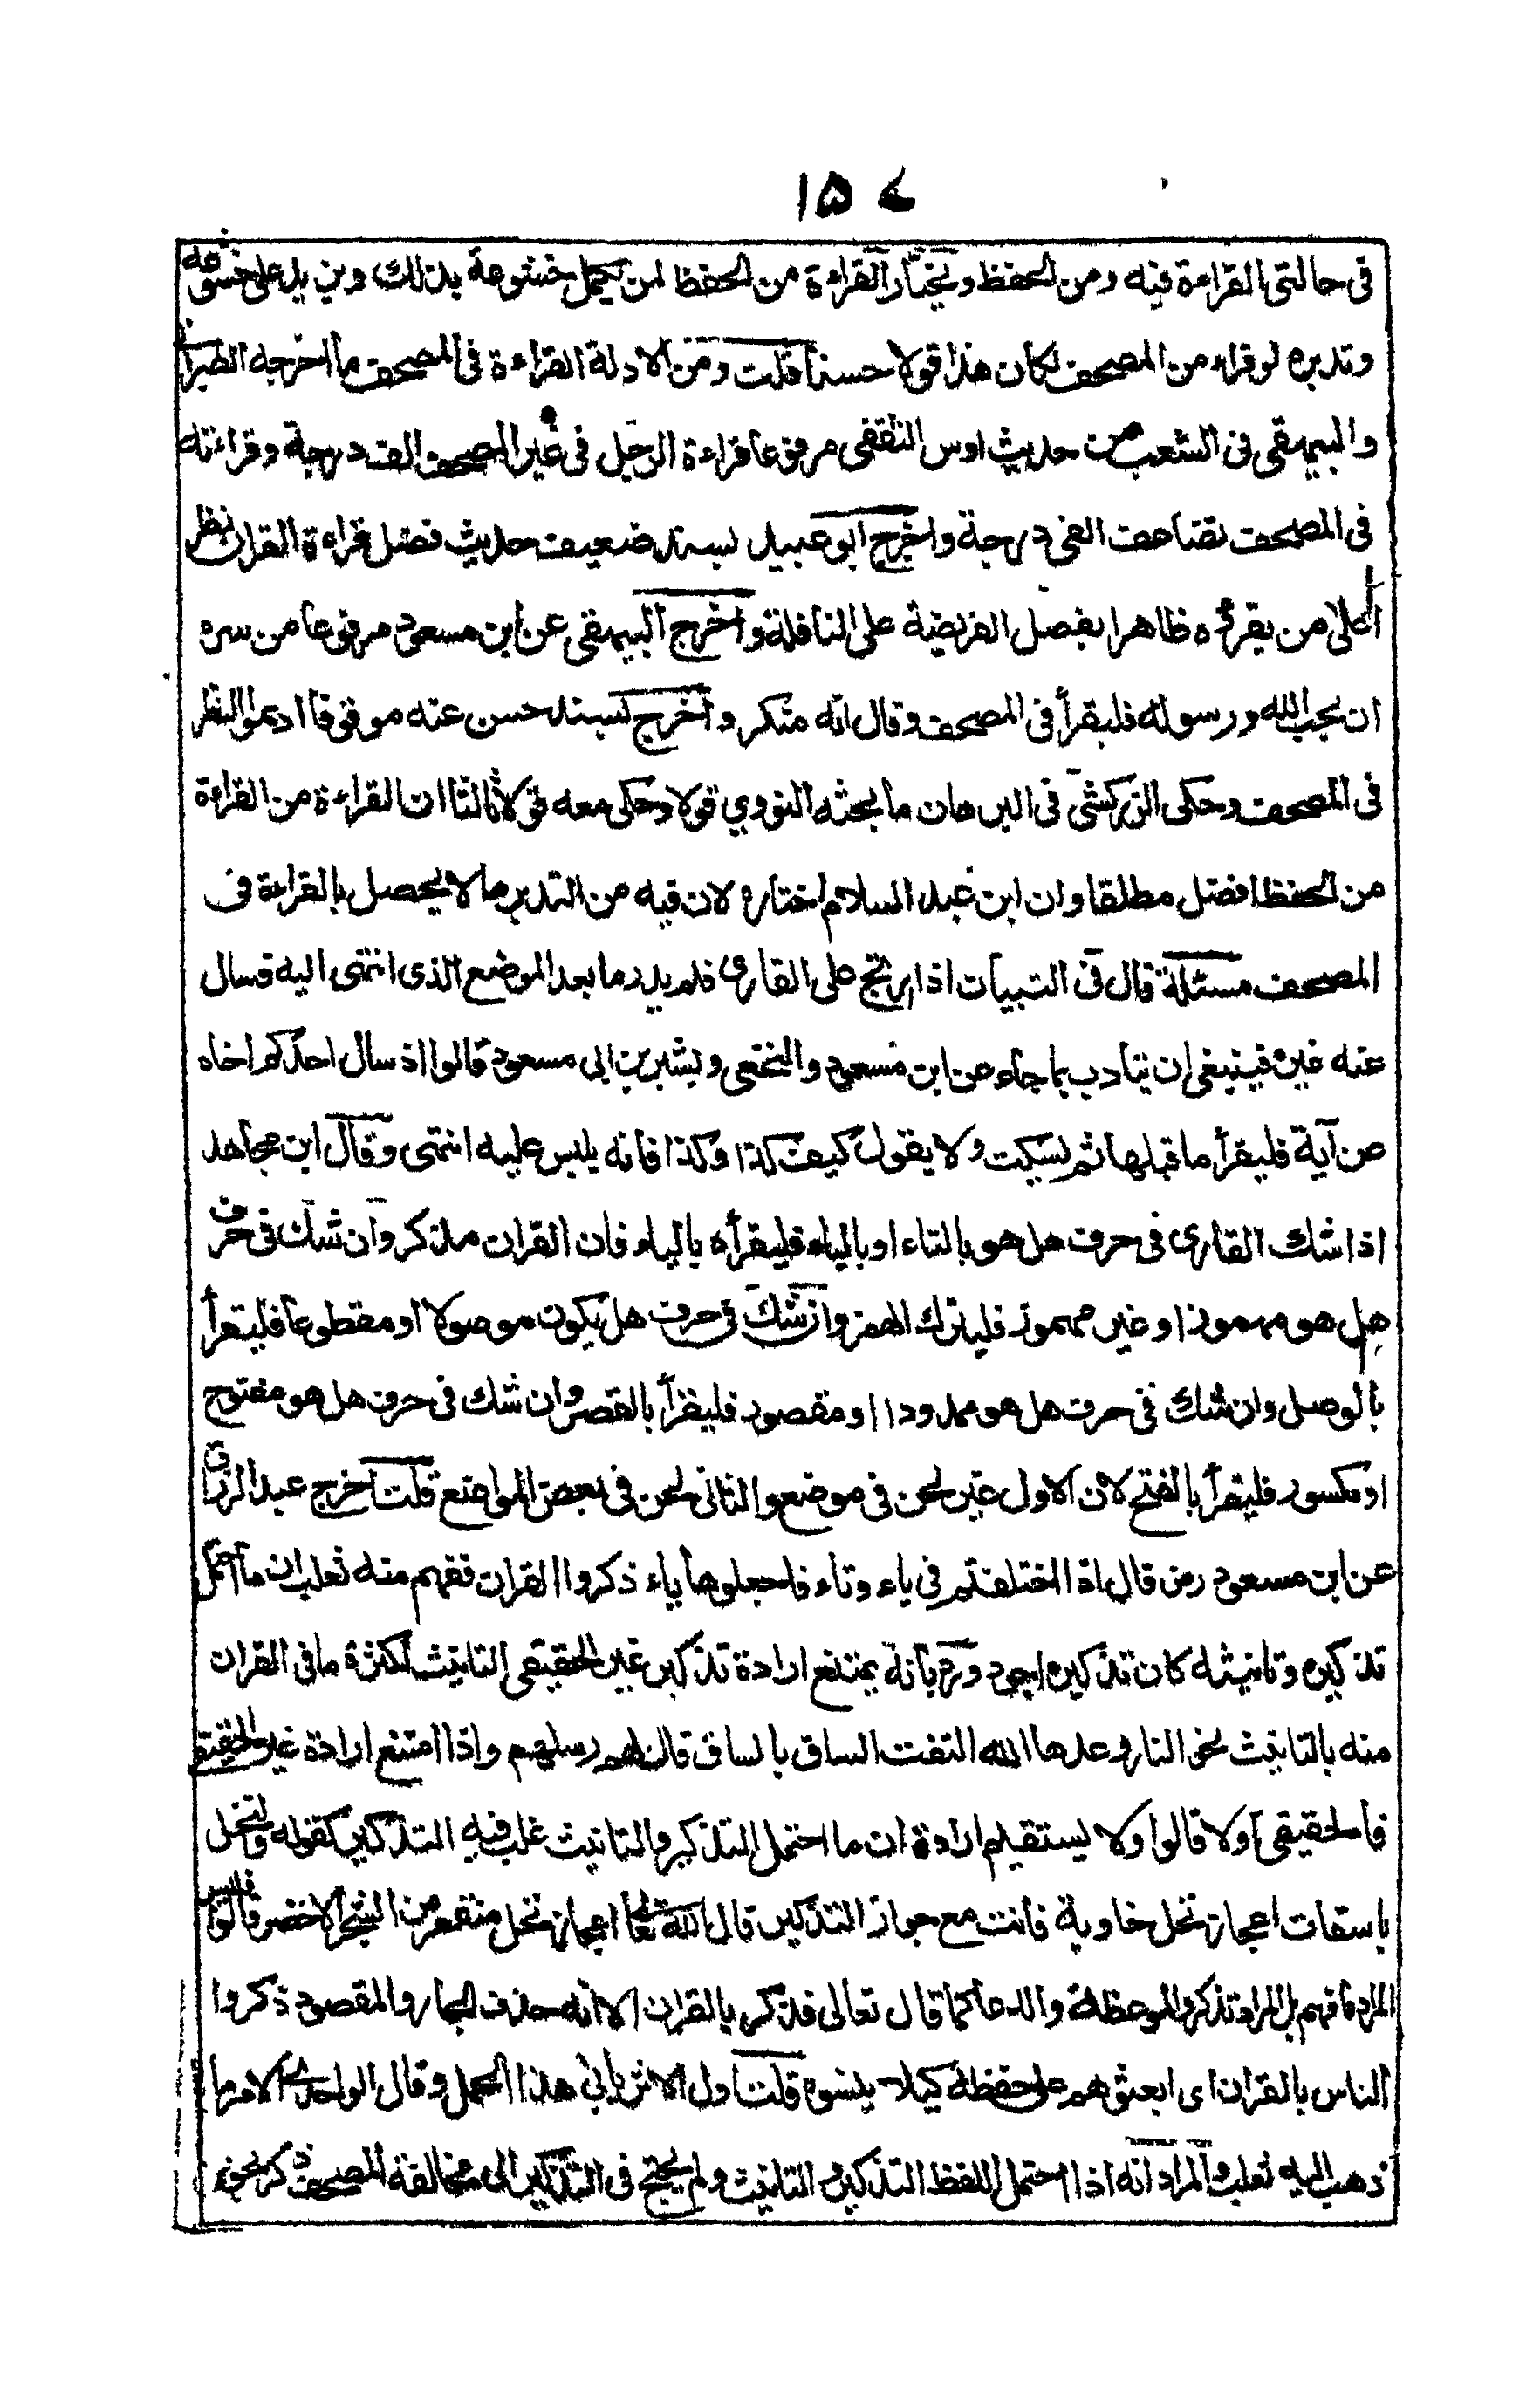 ١٥٧
فى حالتى القراءة فيه ومن الحفظ ويختار القراءة من الحفظ لمن يكمل خشوعة بذلك ويزيد على خشوعه
وتدبره لو قراء من المصحف لكان هذا قولا حسنا قلت ومن الادلة القراءة فى المصحف ما اخرجه الطبرانى
والبيهقى فى الشعب من حديث اوس الثقفى مرفوعا قراءة الرجل فى غير المصحف الف درجة وقراءته
فى المصحف تضاعف الفى درجة واخرج ابو عبيد بسند ضعيف حديث فضل قراءة القران نظر
اعلى من يقرؤه ظاهرا بفضل الفريضة على النافلة واخرج البيهقى عن ابن مسعود مرفوعا من سره
ان يحب الله ورسوله فليقرأ فى المصحف وقال انه منكر واخرج بسند حسن عنه موقوفا اديموا النظر
فى المصحف وحكى الزركشى فى البرهان ما بحثه النووي قولا وحكى معه قولا ثالثا ان القراءة من القراءة
من الحفظ افضل مطلقا وان ابن عبد السلام اختاره لان فيه من التدبر ما لا يحصل بالقراءة فى
المصحف مسئلة قال فى التبيان اذا ارتج على القارى فلم يدر ما بعد الموضع الذى انتهى اليه فسال
عنه غيره فينبغى ان يتادب بما جاء عن ابن مسعود والنخعى وبشير بن ابى مسعود قالوا اذ سال احدكم اخاه
عن آية فليقرأ ما قبلها ثم ليسكت ولا يقول كيف كذا وكذا فانه يلبس عليه انتهى وقال ابن مجاهد
اذا شك القارى فى حرف هل هو بالتاء او بالياء فليقرأه بالياء فان القران مذكر وان شك فى حرف
هل هو مهموز او غير مهموز فليترك الهمز وان شك فى حرف هل يكون موصولا او مقطوعا فليقرأ
بالوصل وان شك فى حرف هل هو ممدودا او مقصور فليقرأ بالقصر وان شك فى حرف هل هو مفتوح
او مكسور فليقرأ بالفتح لان الاول غير لحن فى موضع والثانى لحن فى بعض المواضع قلت اخرج عبد الرزاق
عن ابن مسعود رض قال اذا اختلفتم فى ياء وتاء فاجعلوها ياء ذكروا القران ففهم منه ثعلب ان ما احتمل
تذكيره وتانيثه كان تذكيره اجود ورد بانه يمتنع ارادة تذكير غير الحقيقى التانيث لكثرة ما فى القران
منه بالتانيث نحو النار وعدها الله التفت الساق بالساق قالت لهم رسلهم واذا امتنع ارادة غير الحقيقى
فالحقيقى اولا قالوا ولا يستقيم ارادة ان ما احتمل التذكير والتانيث غلب فيه التذكير كقوله والنخل
باسقات اعجاز نخل خاوية فانث مع جواز التذكير قال الله تعا اعجاز نخل منقعر من الشجر الاخضر قالوا فليس
المراد ما فهم بل المراد تذكروا الموعظة والدعا كما قال تعالى فذكر بالقران الا انه حذف الجار والمقصود ذكروا
الناس بالقران اى ابعثوهم على حفظه كيلا ينسوه قلت اول الاثر يابى هذا الحمل وقال الواحدى الامر ما
ذهب اليه ثعلب والمراد انه اذا احتمل اللفظ التذكير والتانيث ولم يحتج فى التذكير الى مخالفة المصحف ذكر نحو